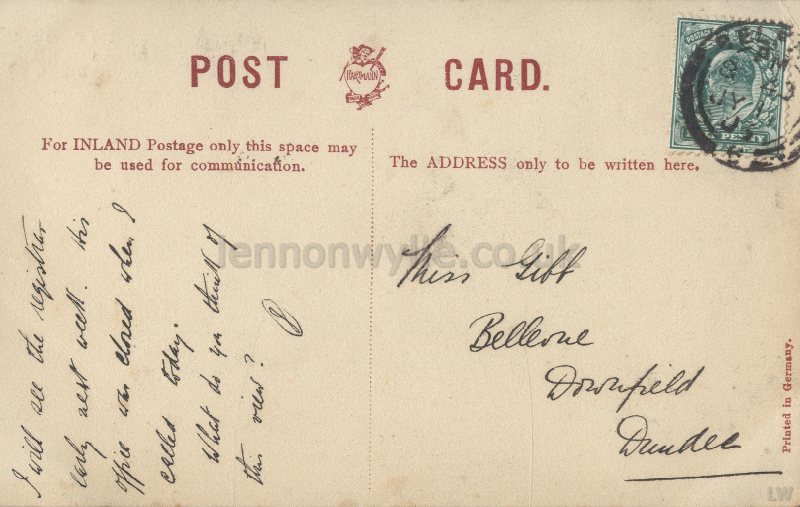 POST CARD.
HARTMANN
For INLAND Postage only this space may
be used for communication.
The ADDRESS only to be written here.
POSTAGE
PENNY
I will see the registrar
early next week. His
office was closed when I
called today.
What do you think of
this view?
Miss Gibb
Bellevue
Downfield
Dundee
Printed in Germany.
lennonwylie.co.uk
LW